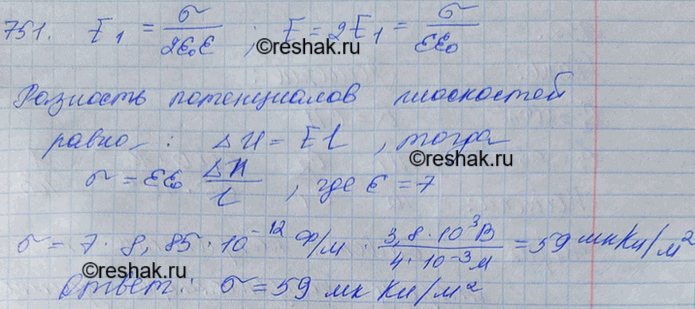 751. E₁ = σ/2ε₀ε ; E = 2E₁ = σ/εε₀
©reshak.ru ©reshak.ru
Разность потенциалов плоскостей
равно : ΔU = El , тогда
©reshak.ru ©reshak.ru
σ = εε₀ ΔU/l , где ε = 7
σ = 7 · 8,85 · 10⁻¹² Ф/м · 3,8 · 10³ В/4 · 10⁻³ м = 59 мкКл/м²
©reshak.ru ©reshak.ru
Ответ: σ = 59 мк Кл/м²